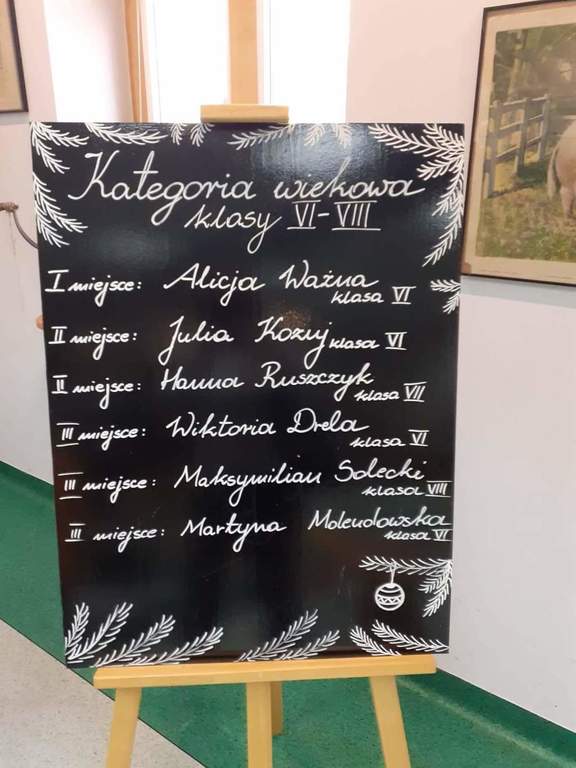 Kategoria wiekowa
klasy VI-VIII
I miejsce: Alicja Ważna
klasa VI
II miejsce: Julia Kozuj klasa VI
II miejsce: Hanna Ruszczyk
klasa VII
III miejsce: Wiktoria Drela
klasa VI
III miejsce: Maksymilian Solecki
klasa VIII
III miejsce: Martyna Molendowska
klasa VI